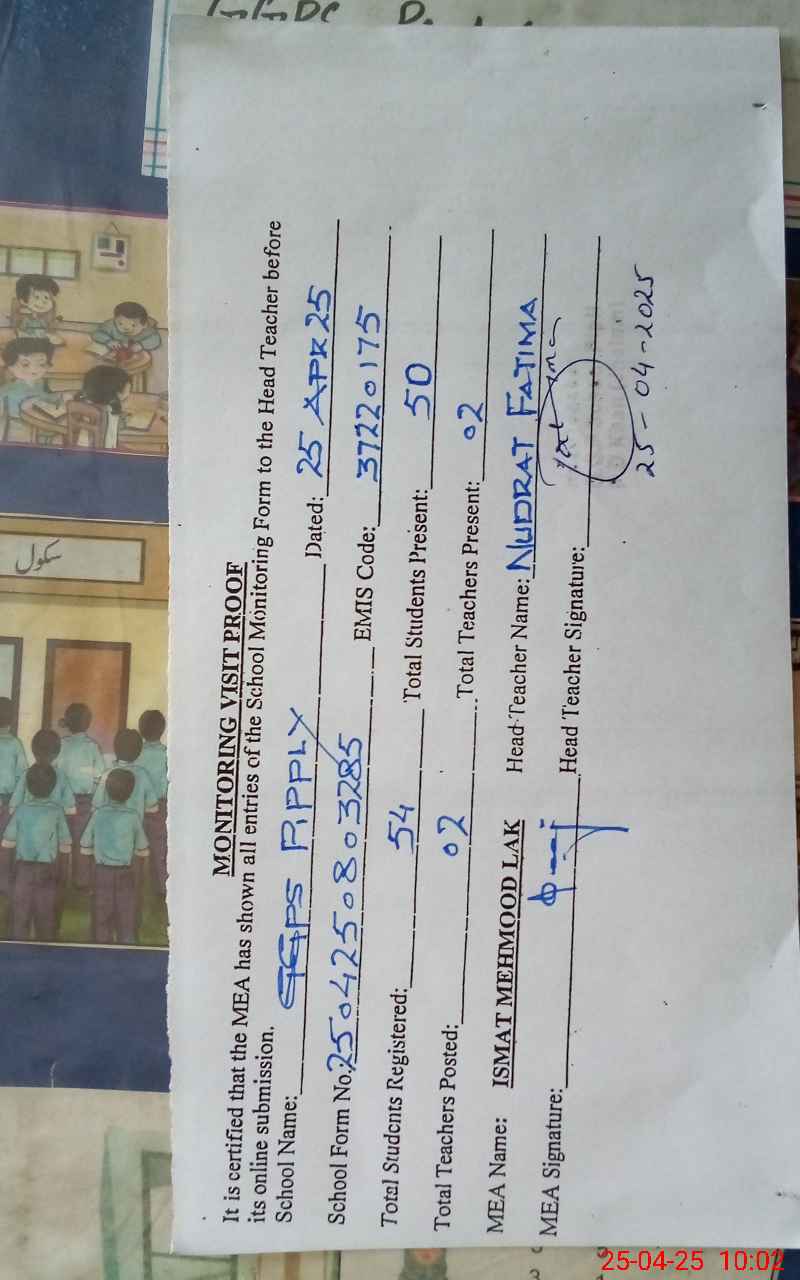 MONITORING VISIT PROOF
It is certified that the MEA has shown all entries of the School Monitoring Form to the Head Teacher before
its online submission.
School Name: GGPS PIPPLY Dated: 25 APR 25
School Form No: 2504250803285 EMIS Code: 37220175
Total Students Registered: 54 Total Students Present: 50
Total Teachers Posted: 02 Total Teachers Present: 02
MEA Name: ISMAT MEHMOOD LAK Head Teacher Name: NUDRAT FATIMA
MEA Signature: Head Teacher Signature:
25-04-2025
سکول
25-04-25 10:02